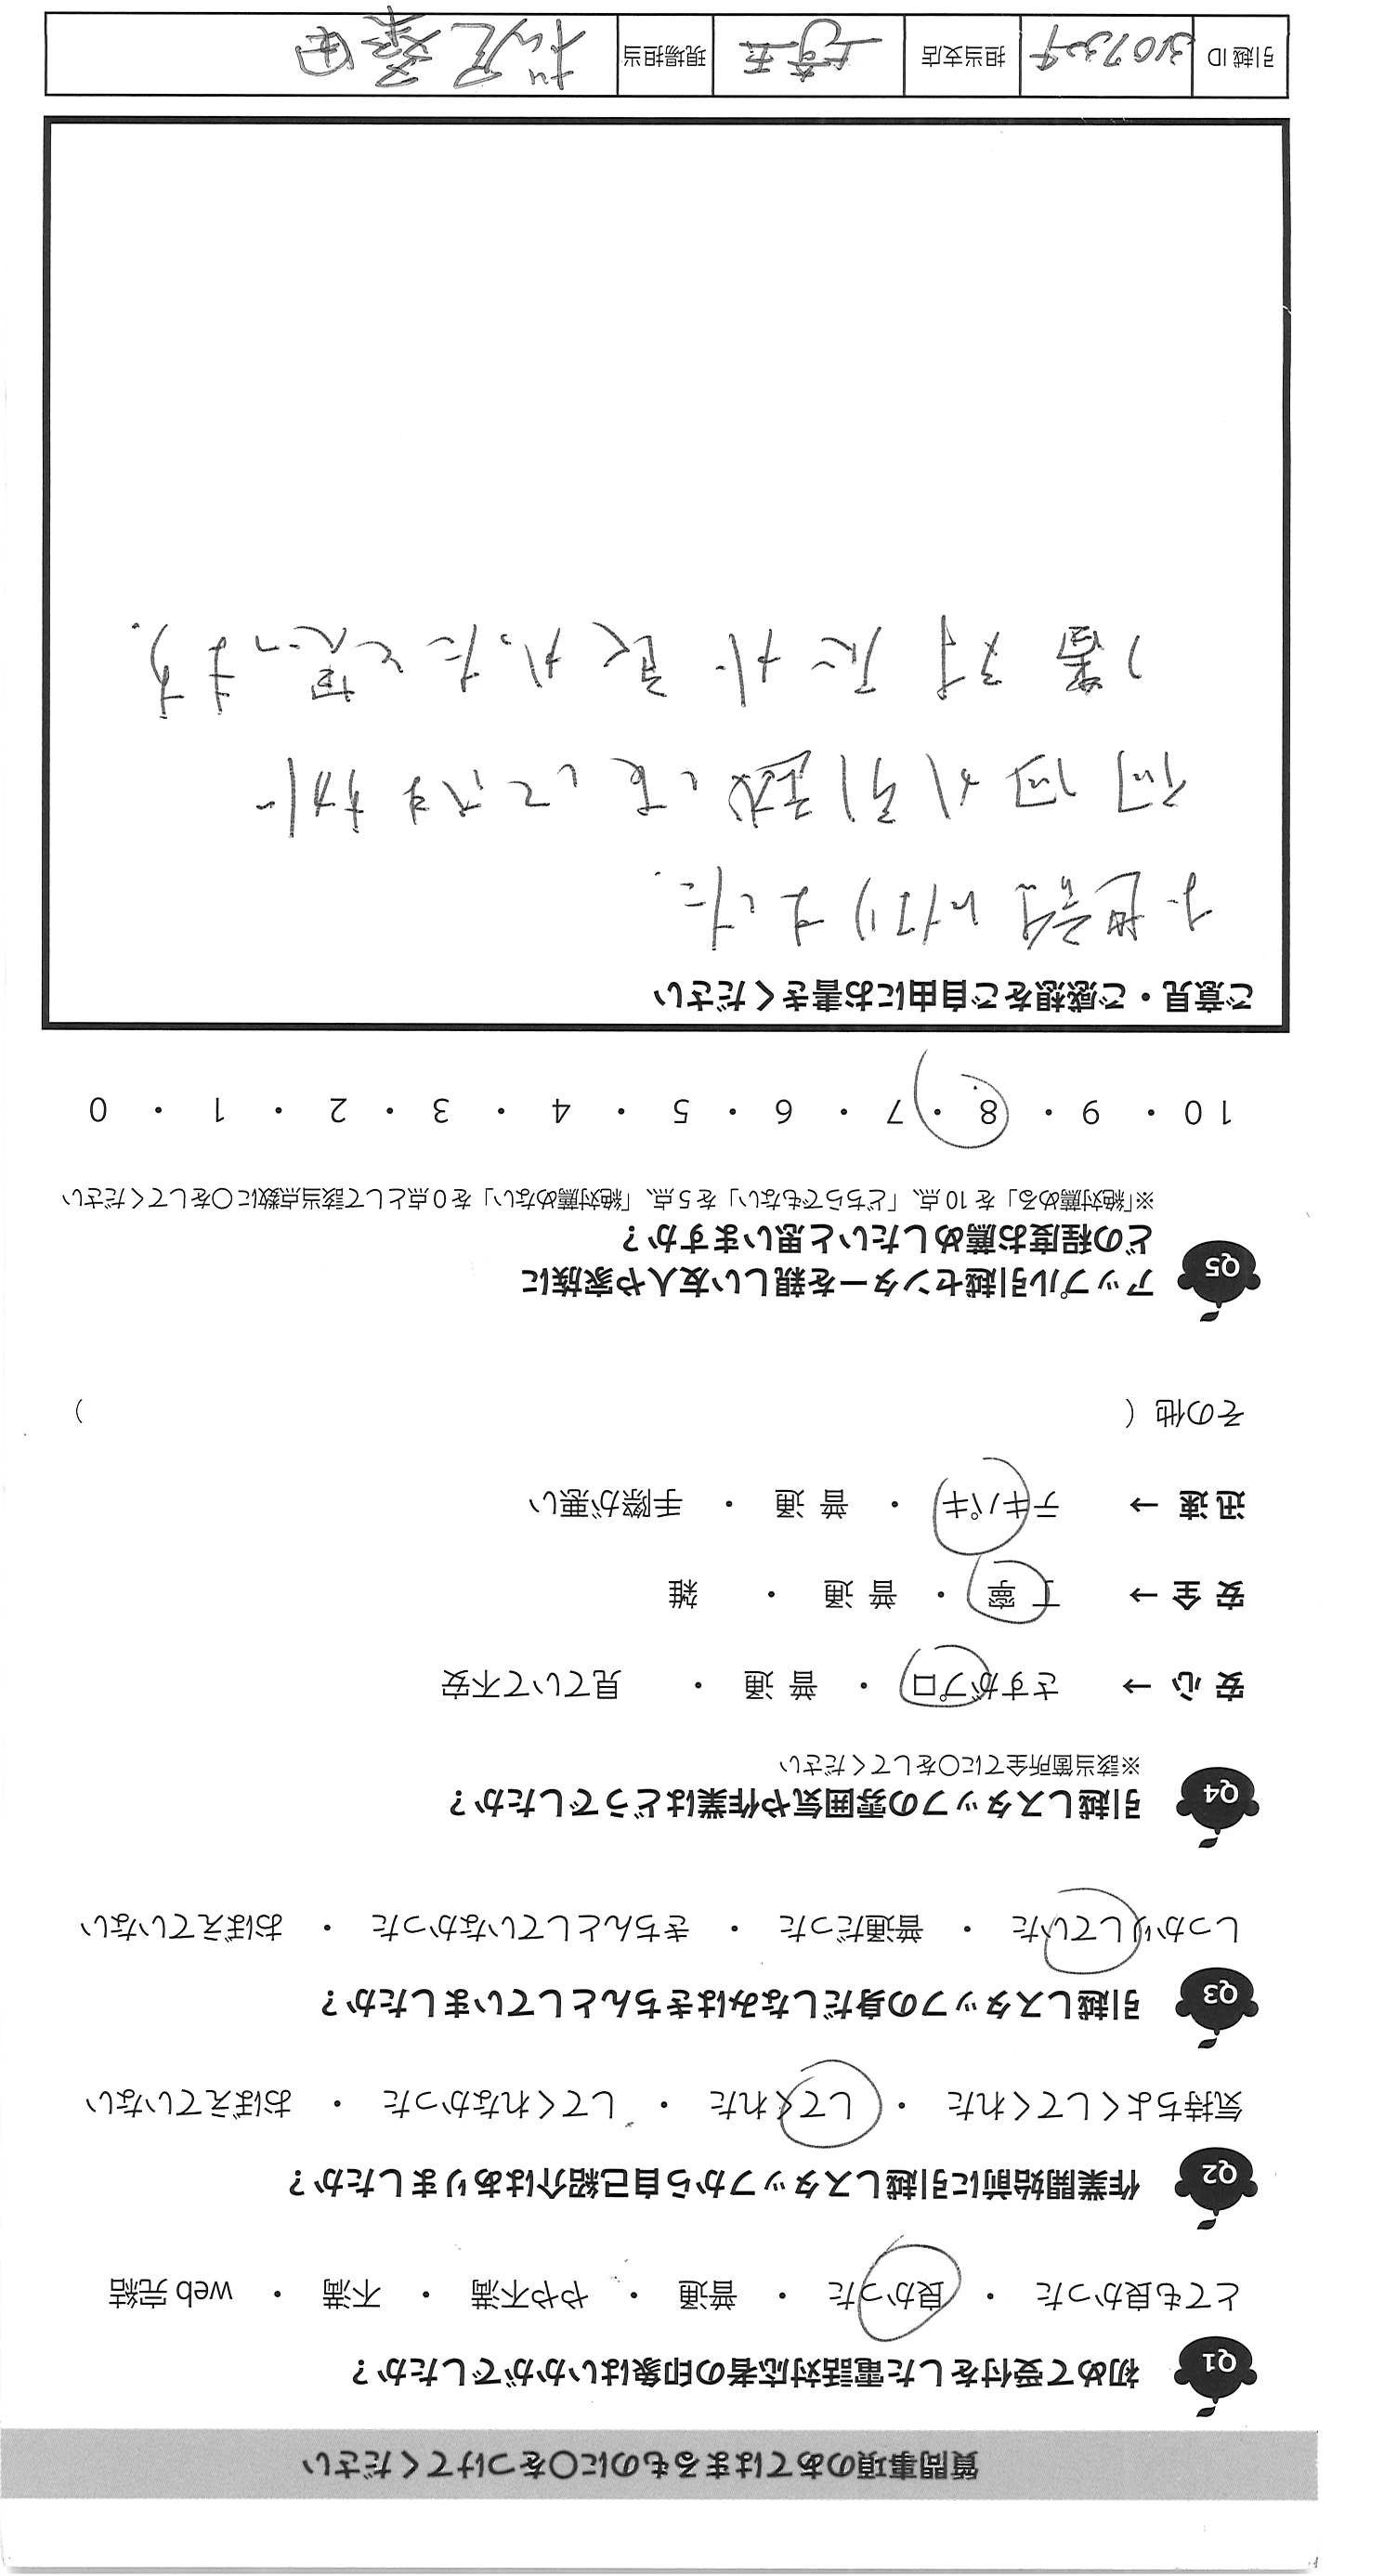 質問事項のあてはまるものに〇をつけてください
Q1 初めて受付をした電話対応者の印象はいかがでしたか？
とても良かった ・ 良かった ・ 普通 ・ やや不満 ・ 不満 ・ web 完結
Q2 作業開始前に引越しスタッフから自己紹介はありましたか？
気持ちよくしてくれた ・ してくれた ・ してくれなかった ・ おぼえていない
Q3 引越しスタッフの身だしなみはきちんとしていましたか？
しっかりしていた ・ 普通だった ・ きちんとしていなかった ・ おぼえていない
Q4 引越しスタッフの雰囲気や作業はどうでしたか？
※該当箇所全てに〇をしてください
安 心 → さすがプロ ・ 普 通 ・ 見ていて不安
安 全 → 丁 寧 ・ 普 通 ・ 雑
迅 速 → テキパキ ・ 普 通 ・ 手際が悪い
その他（ ）
Q5 アップル引越センターを親しい友人や家族に
どの程度お薦めしたいと思いますか？
※「絶対薦める」を 10 点、「どちらでもない」を 5 点、「絶対薦めない」を 0 点として該当点数に〇をしてください
10 ・ 9 ・ 8 ・ 7 ・ 6 ・ 5 ・ 4 ・ 3 ・ 2 ・ 1 ・ 0
ご意見・ご感想をご自由にお書きください
お世話になりました.
何回か引越しをしてますが
1番対応が良かったと思います.
引越 ID 担当支店 埼玉 現場担当 松尾 桑田